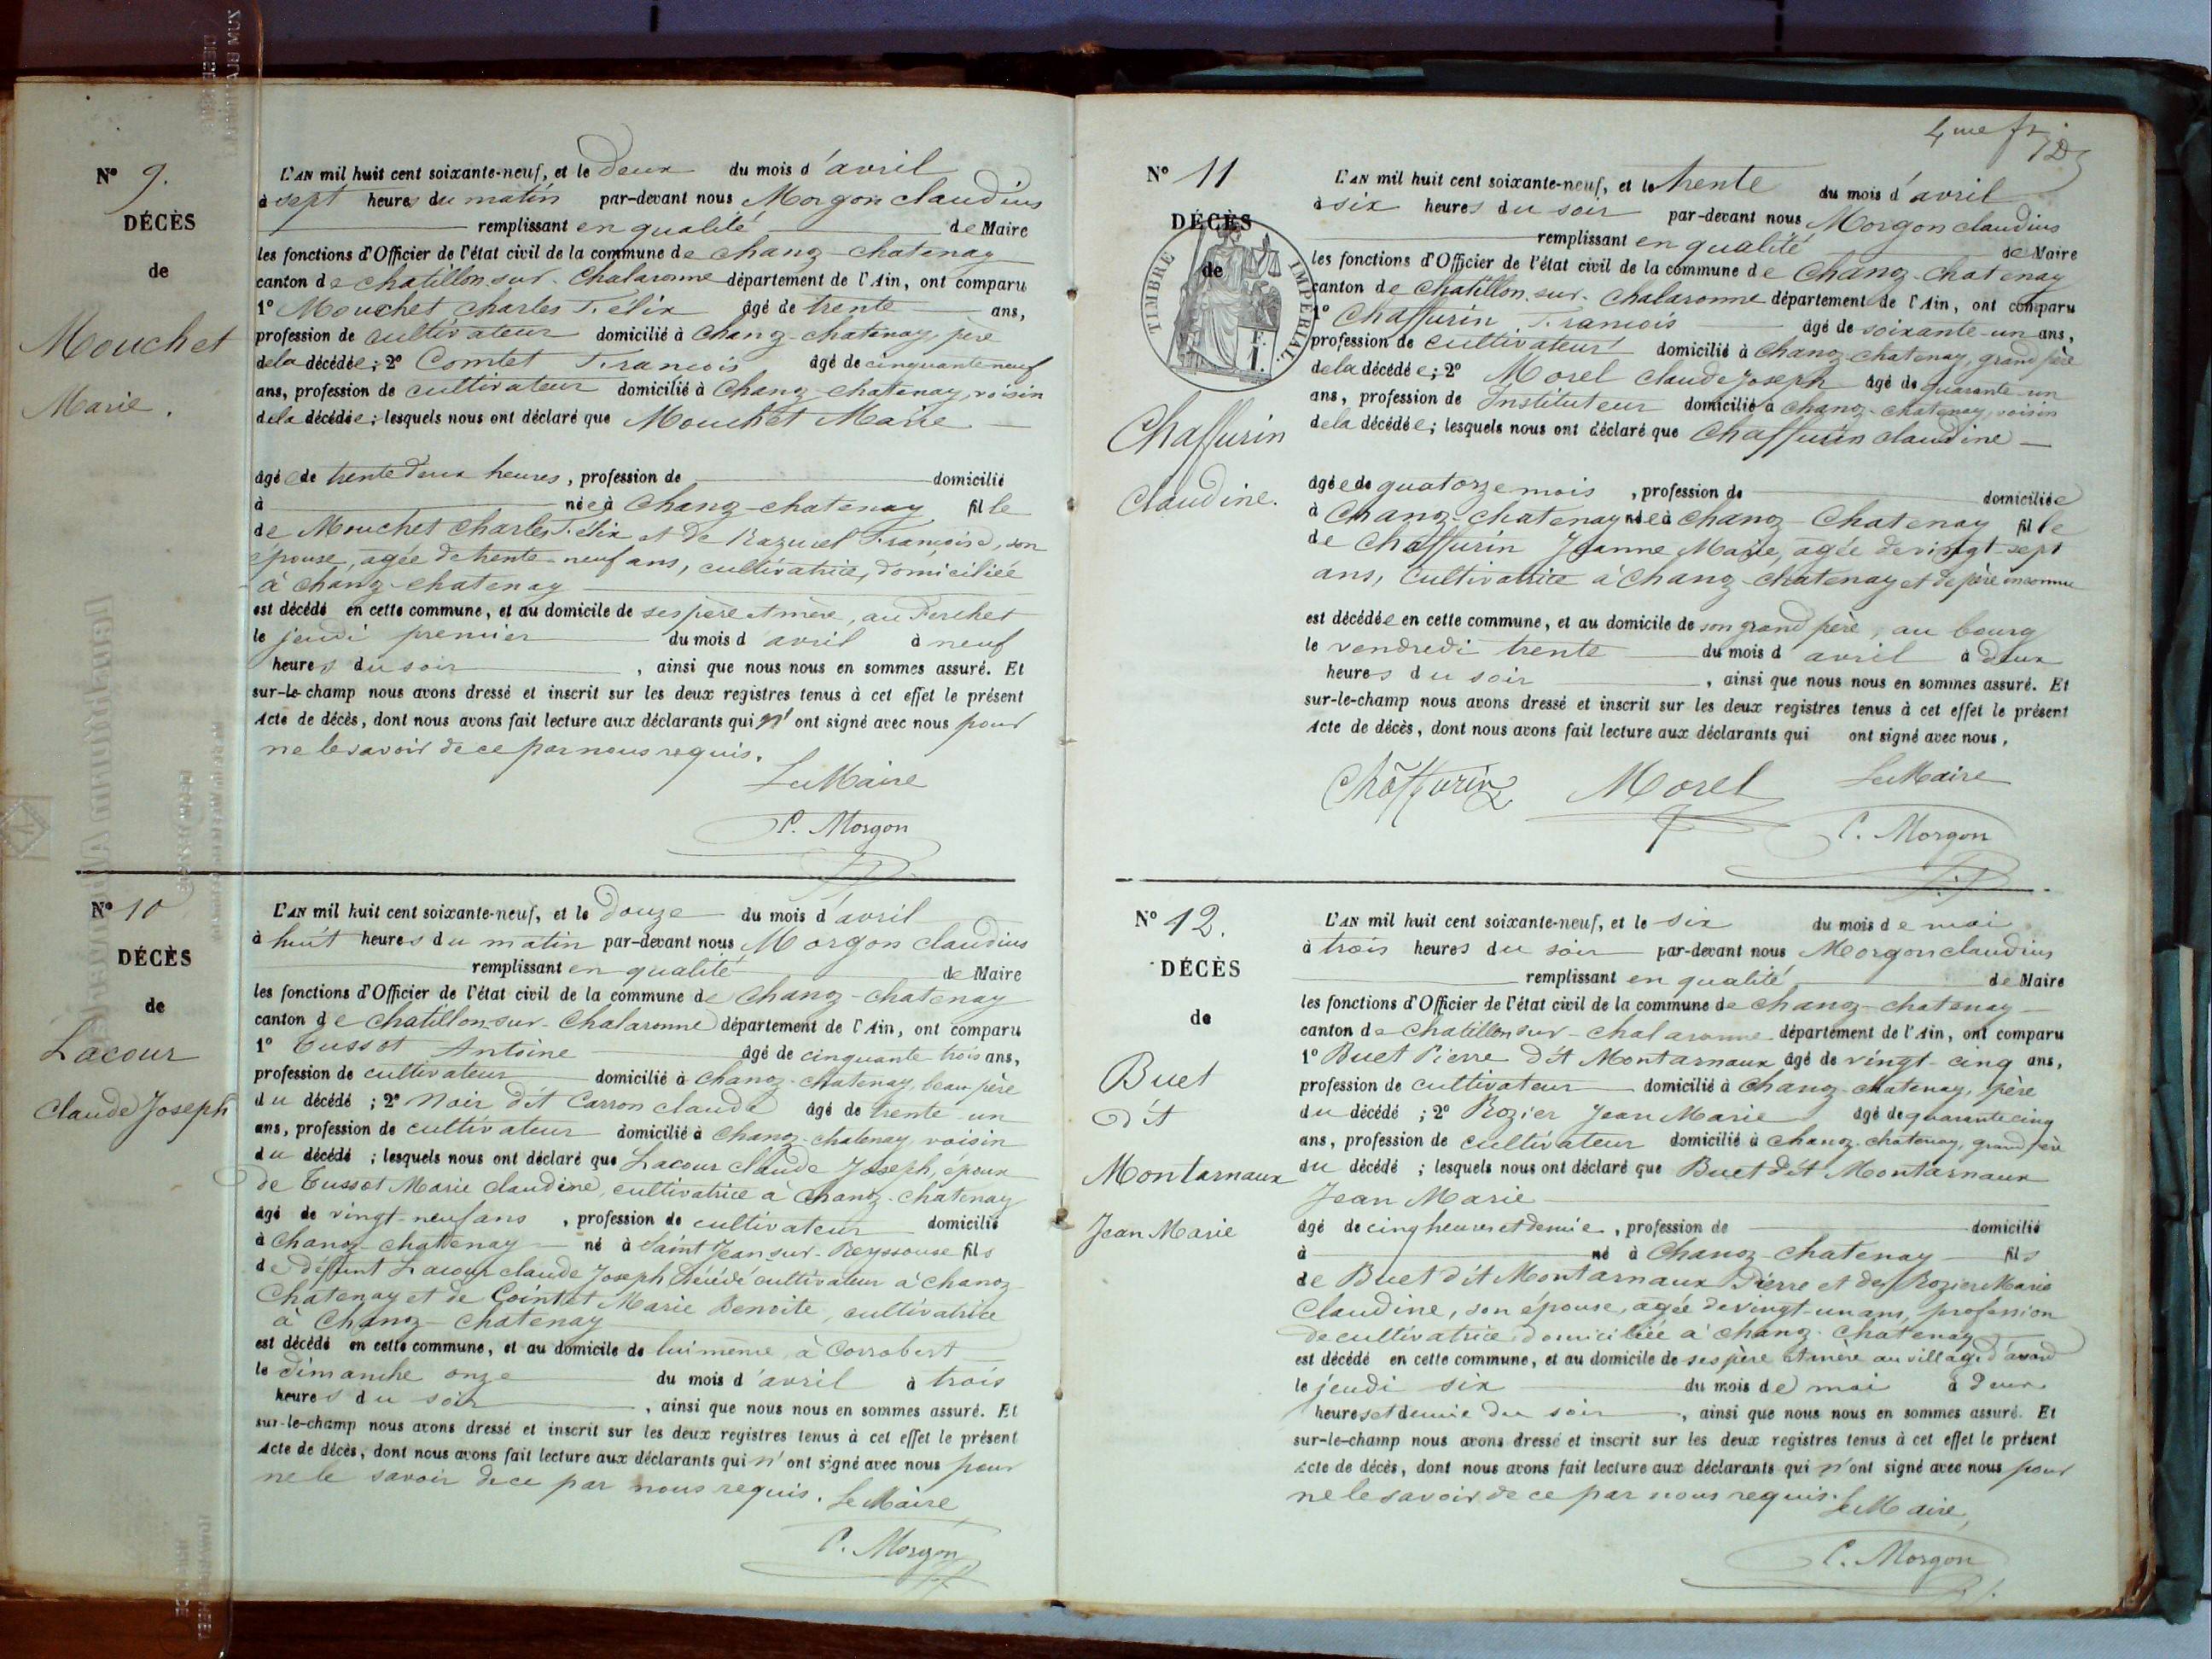 N° 9.
DÉCÈS
de
Mouchet
Marie.
L'AN mil huit cent soixante-neuf, et le deux du mois d'avril
à sept heures du matin par-devant nous Morgon claudius
remplissant en qualité de Maire
les fonctions d'Officier de l'état civil de la commune de chanoz-chatenay
canton de chatillon-sur-Chalaronne département de l'Ain, ont comparu
1° Mouchet charles Félix âgé de trente ans,
profession de cultivateur domicilié à chanoz-chatenay, père
de la décédée; 2° Comtet François âgé de cinquante neuf
ans, profession de cultivateur domicilié à Chanoz-chatenay, voisin
de la décédée; lesquels nous ont déclaré que Mouchet Marie
âgée de trente deux heures, profession de domicilié
à née à Chanoz-chatenay fille
de Mouchet charles Félix et de Françoise, son
épouse, agée de trente-neuf ans, cultivatrice, domiciliée
à chanoz-chatenay
est décédé en cette commune, et au domicile de ses père et mère, au
le jeudi premier du mois d'avril à neuf
heures du soir, ainsi que nous nous en sommes assuré. Et
sur-le-champ nous avons dressé et inscrit sur les deux registres tenus à cet effet le présent
Acte de décès, dont nous avons fait lecture aux déclarants qui n'ont signé avec nous pour
ne le savoir de ce par nous requis.
Le Maire
C. Morgon
N° 10
DÉCÈS
de
Lacour
Claude Joseph
L'AN mil huit cent soixante-neuf, et le douze du mois d'avril
à huit heures du matin par-devant nous Morgon claudius
remplissant en qualité de Maire
les fonctions d'Officier de l'état civil de la commune de chanoz-chatenay
canton de chatillon-sur-Chalaronne département de l'Ain, ont comparu
1° Tussot Antoine âgé de cinquante trois ans,
profession de cultivateur domicilié à chanoz-chatenay, beau-père
du décédé; 2° Noir dit Carron claude âgé de trente-un
ans, profession de cultivateur domicilié à Chanoz-chatenay, voisin
du décédé; lesquels nous ont déclaré que Lacour claude Joseph, époux
de Tussot Marie claudine, cultivatrice à chanoz-chatenay
âgé de vingt-neuf ans, profession de cultivateur domicilié
à Chanoz-chatenay né à Saint Jean-sur-Reyssouse fils
de défunt Lacour claude Joseph décédé cultivateur à chanoz-
Chatenay et de Cointet Marie Benoite, cultivatrice
à Chanoz-chatenay
est décédé en cette commune, et au domicile de lui même, à Corrobert
le dimanche onze du mois d'avril à trois
heures du soir, ainsi que nous nous en sommes assuré. Et
sur-le-champ nous avons dressé et inscrit sur les deux registres tenus à cet effet le présent
Acte de décès, dont nous avons fait lecture aux déclarants qui n'ont signé avec nous pour
ne le savoir de ce par nous requis. Le Maire
C. Morgon
4me
N° 11
DÉCÈS
de
TIMBRE IMPÉRIAL
Chaffurin
Claudine.
L'AN mil huit cent soixante-neuf, et le trente du mois d'avril
à six heures du soir par-devant nous Morgon claudius
remplissant en qualité de Maire
les fonctions d'Officier de l'état civil de la commune de Chanoz-chatenay
canton de Chatillon-sur-Chalaronne département de l'Ain, ont comparu
1° Chaffurin François âgé de soixante-un ans,
profession de cultivateur domicilié à Chanoz-chatenay, grand père
de la décédée; 2° Morel claude Joseph âgé de quarante-un
ans, profession de Instituteur domicilié à chanoz-chatenay, voisin
de la décédée; lesquels nous ont déclaré que Chaffurin claudine
âgée de quatorze mois, profession de domiciliée
à Chanoz-chatenay née à chanoz-Chatenay fille
de Chaffurin Jeanne Marie, agée de vingt-sept
ans, cultivatrice à Chanoz-chatenay et de père inconnu
est décédée en cette commune, et au domicile de son grand père, au bourg
le vendredi trente du mois d'avril à deux
heures du soir, ainsi que nous nous en sommes assuré. Et
sur-le-champ nous avons dressé et inscrit sur les deux registres tenus à cet effet le présent
Acte de décès, dont nous avons fait lecture aux déclarants qui ont signé avec nous,
Chaffurin Morel Le Maire
C. Morgon
N° 12.
DÉCÈS
de
Buet
dit
Montarnaux
Jean Marie
L'AN mil huit cent soixante-neuf, et le six du mois de mai
à trois heures du soir par-devant nous Morgon claudius
remplissant en qualité de Maire
les fonctions d'Officier de l'état civil de la commune de chanoz-chatenay
canton de chatillon sur-chalaronne département de l'Ain, ont comparu
1° Buet Pierre dit Montarnaux âgé de vingt-cinq ans,
profession de cultivateur domicilié à chanoz-chatenay, père
du décédé; 2° Rozier Jean Marie âgé de quarante cinq
ans, profession de cultivateur domicilié à chanoz-chatenay, grand père
du décédé; lesquels nous ont déclaré que Buet dit Montarnaux
Jean Marie
âgé de cinq heures et demie, profession de domicilié
à né à Chanoz-chatenay fils
de Buet dit Montarnaux Pierre et de Rozier Marie
Claudine, son épouse, agée de vingt-un ans, profession
de cultivatrice domiciliée à chanoz-chatenay
est décédé en cette commune, et au domicile de ses père et mère au village
le jeudi six du mois de mai à deux
heures et demie du soir, ainsi que nous nous en sommes assuré. Et
sur-le-champ nous avons dressé et inscrit sur les deux registres tenus à cet effet le présent
Acte de décès, dont nous avons fait lecture aux déclarants qui n'ont signé avec nous pour
ne le savoir de ce par nous requis. Le Maire,
C. Morgon